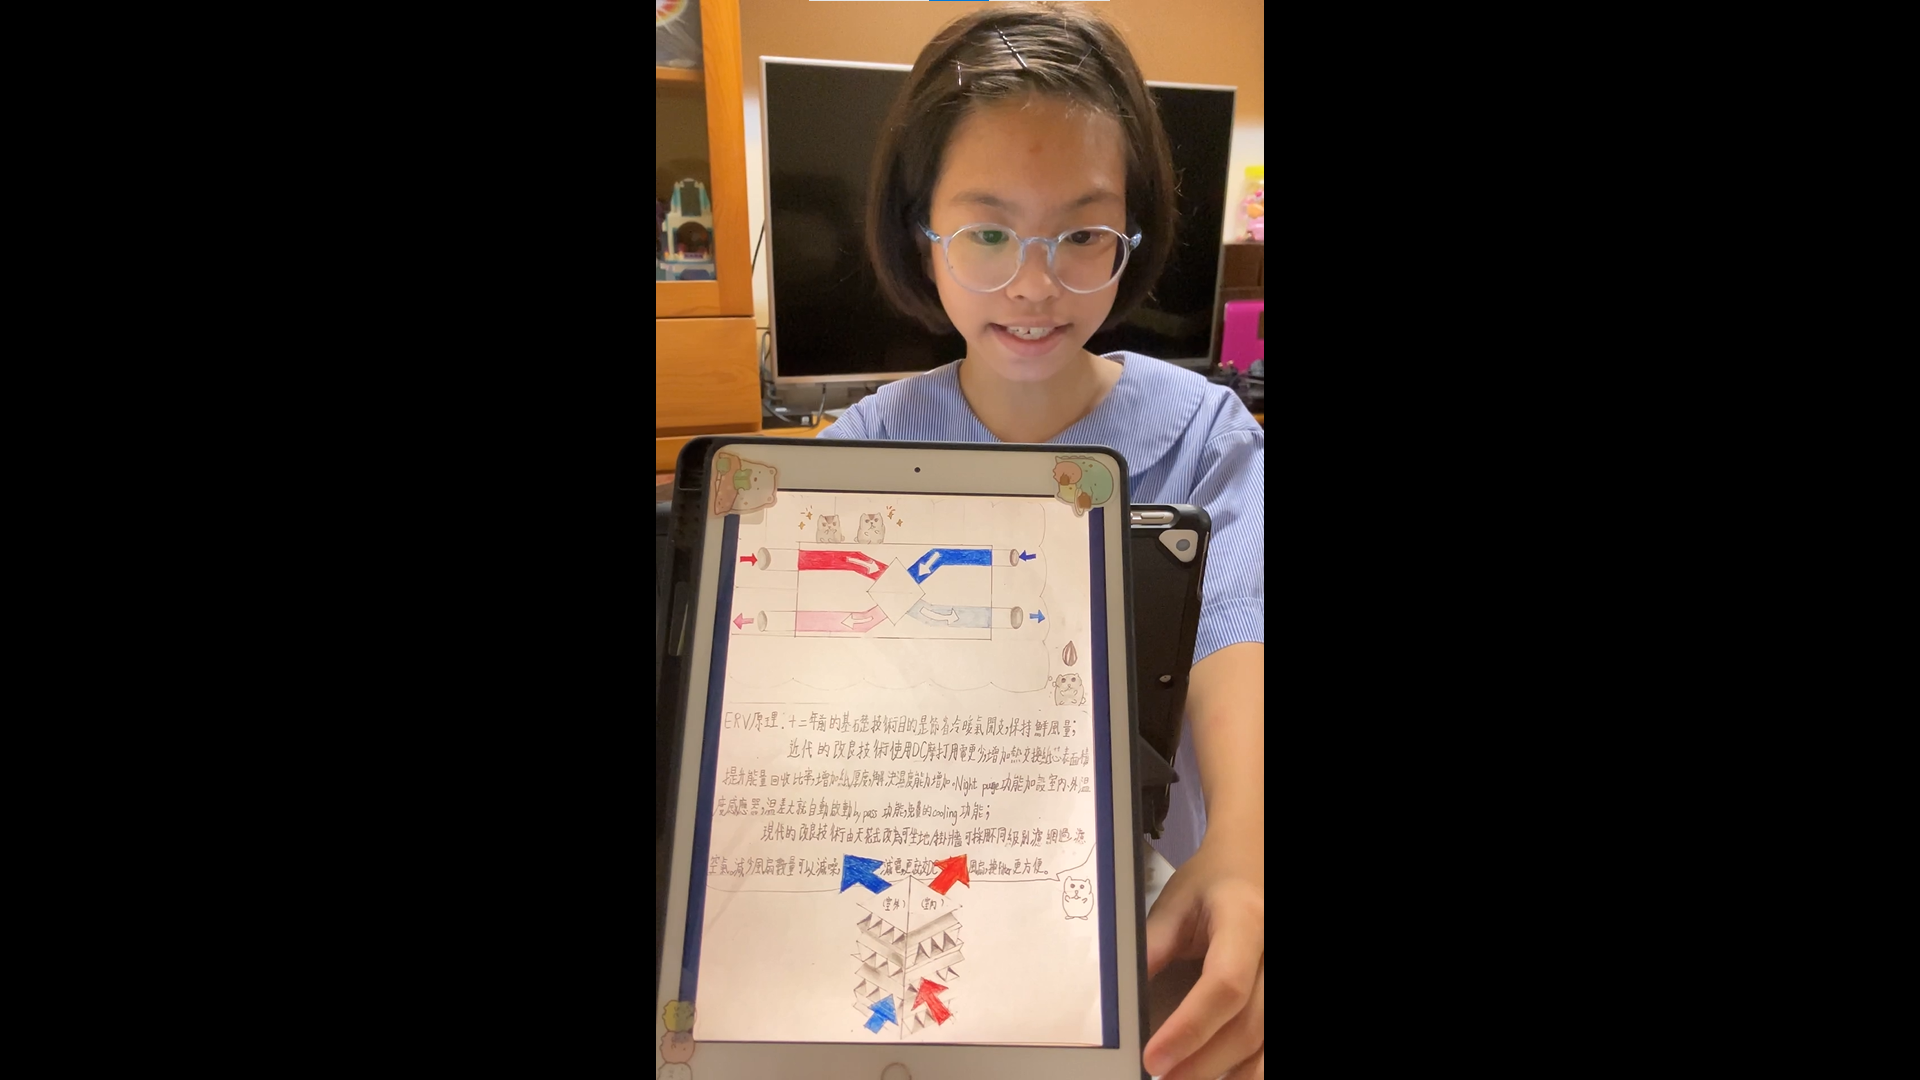 ERV原理:十二年前的基礎技術目的是節省冷暖氣開支,保持鮮風量;
近代的改良技術使用DC摩打用電更少,增加熱交換紙芯表面積
提升能量回收比率,增加紙厚度,解決濕度能力增加。Night purge功能加設室內、外溫
度感應器,溫差大就自動啟動by pass功能,免費的cooling功能;
現代的改良技術由天花式改為可坐地/掛牆,可採用不同級別濾網過濾
空氣。減少風扇數量可以減噪 減電,更 風扇,換filter更方便。
(室外) (室內)